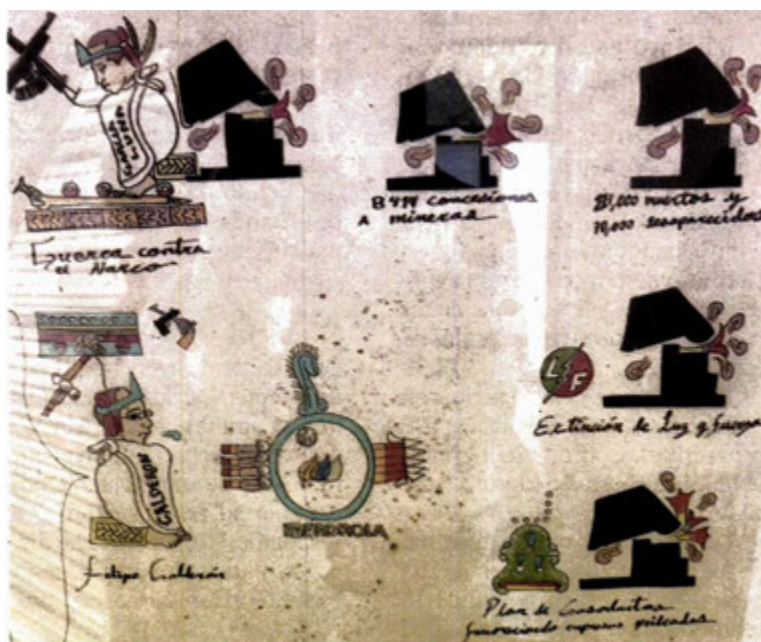 GARCIA LUNA
Guerra contra
el Narco
8414 concesiones
A mineras
muertos y
desaparecidos
L F
Extinción de Luz y Fuerza
CALDERON
Felipe Calderón
IBERDROLA
Plan de Gasoductos
favoreciendo empresas privadas